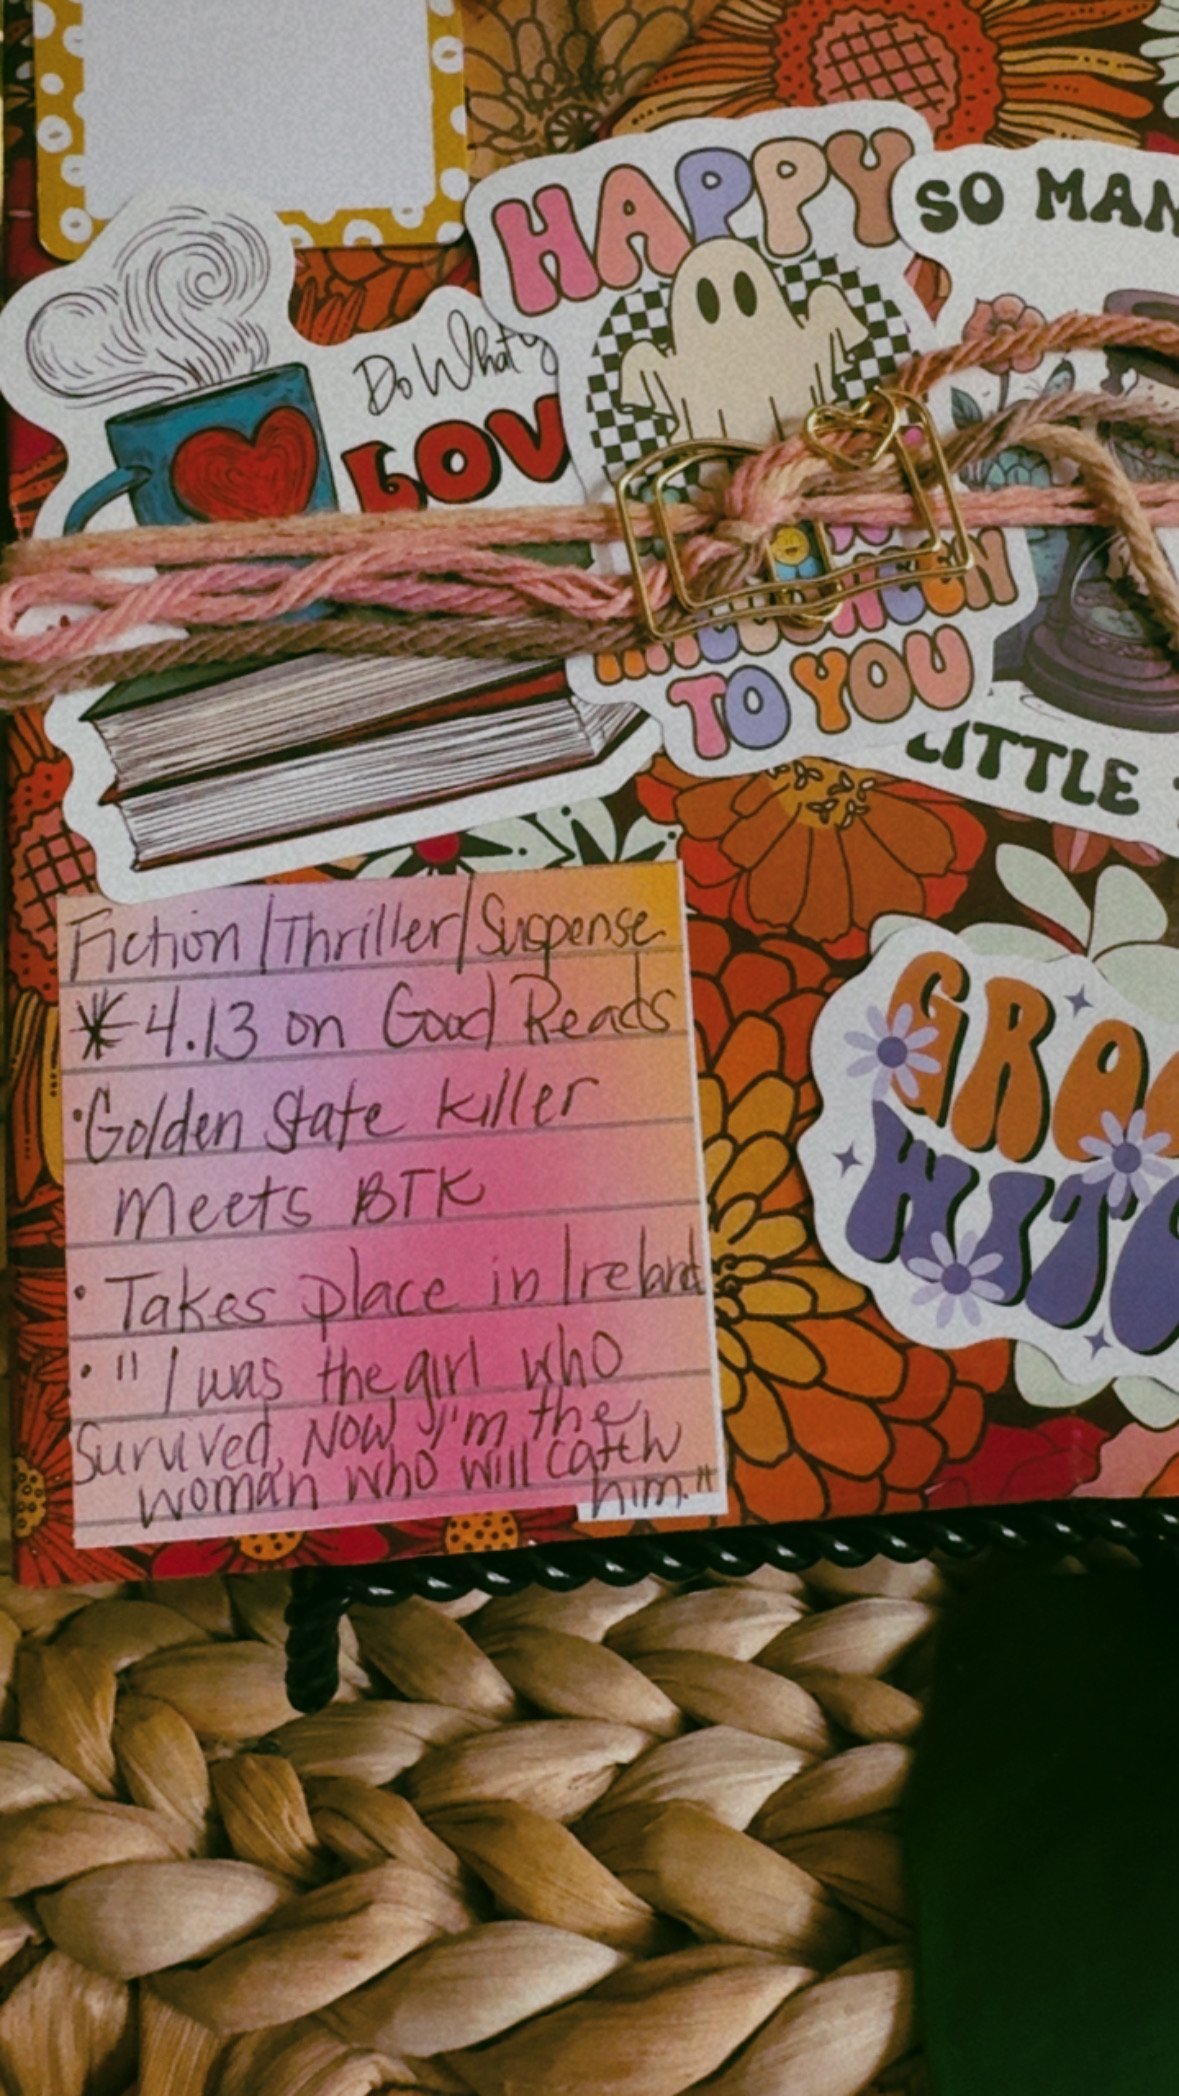 HAPPY
SO MAN
Do What
LOV
TO YOU
LITTLE
Fiction/Thriller/Suspense
* 4.13 on Good Reads
• Golden State killer
Meets BTK
• Takes place in Ireland
• "I was the girl who
Survived, Now I'm the
woman who will catch
him."
GROO
WITC